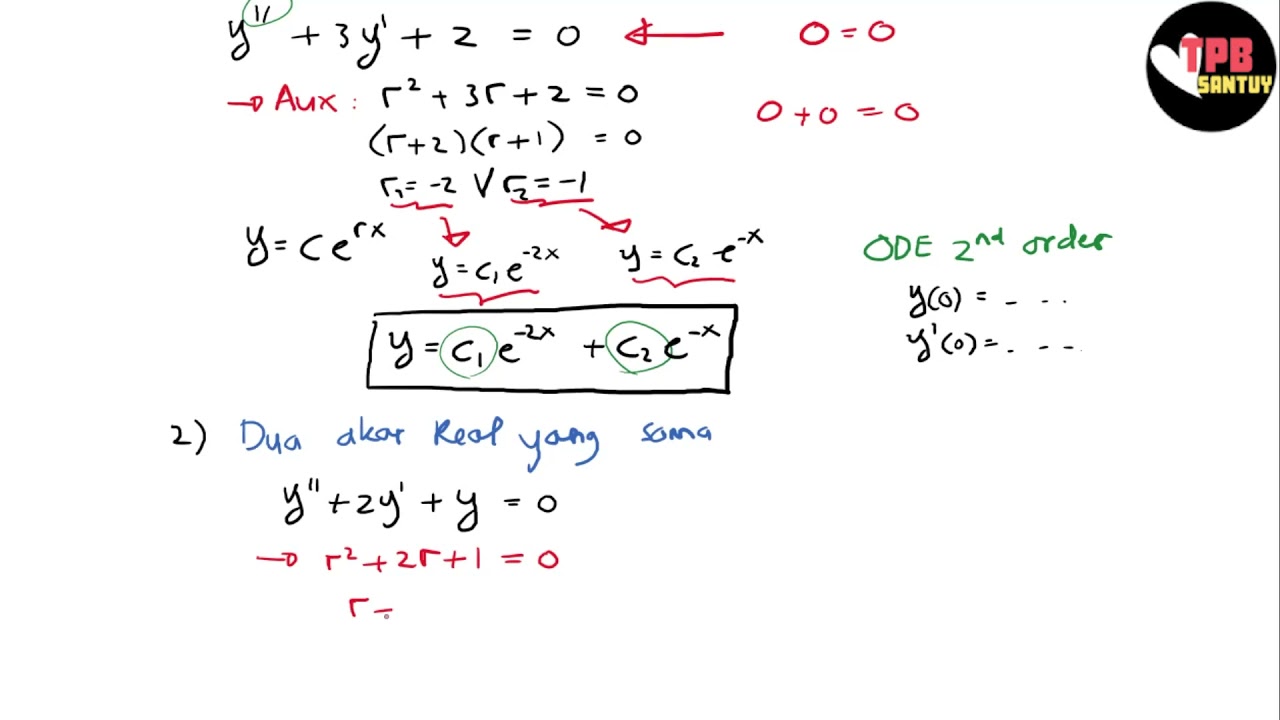 y'' + 3y' + 2 = 0 ← 0 = 0
→ Aux : r² + 3r + 2 = 0
0 + 0 = 0
(r+2)(r+1) = 0
r₁ = -2 V r₂ = -1
y = c e^{rx}
y = c₁ e^{-2x}
y = c₂ e^{-x}
y = c₁ e^{-2x} + c₂ e^{-x}
ODE 2nd order
y(0) = - - -
y'(0) = - - -
2) Dua akar Real yang sama
y'' + 2y' + y = 0
→ r² + 2r + 1 = 0
r =
TPB
SANTUY